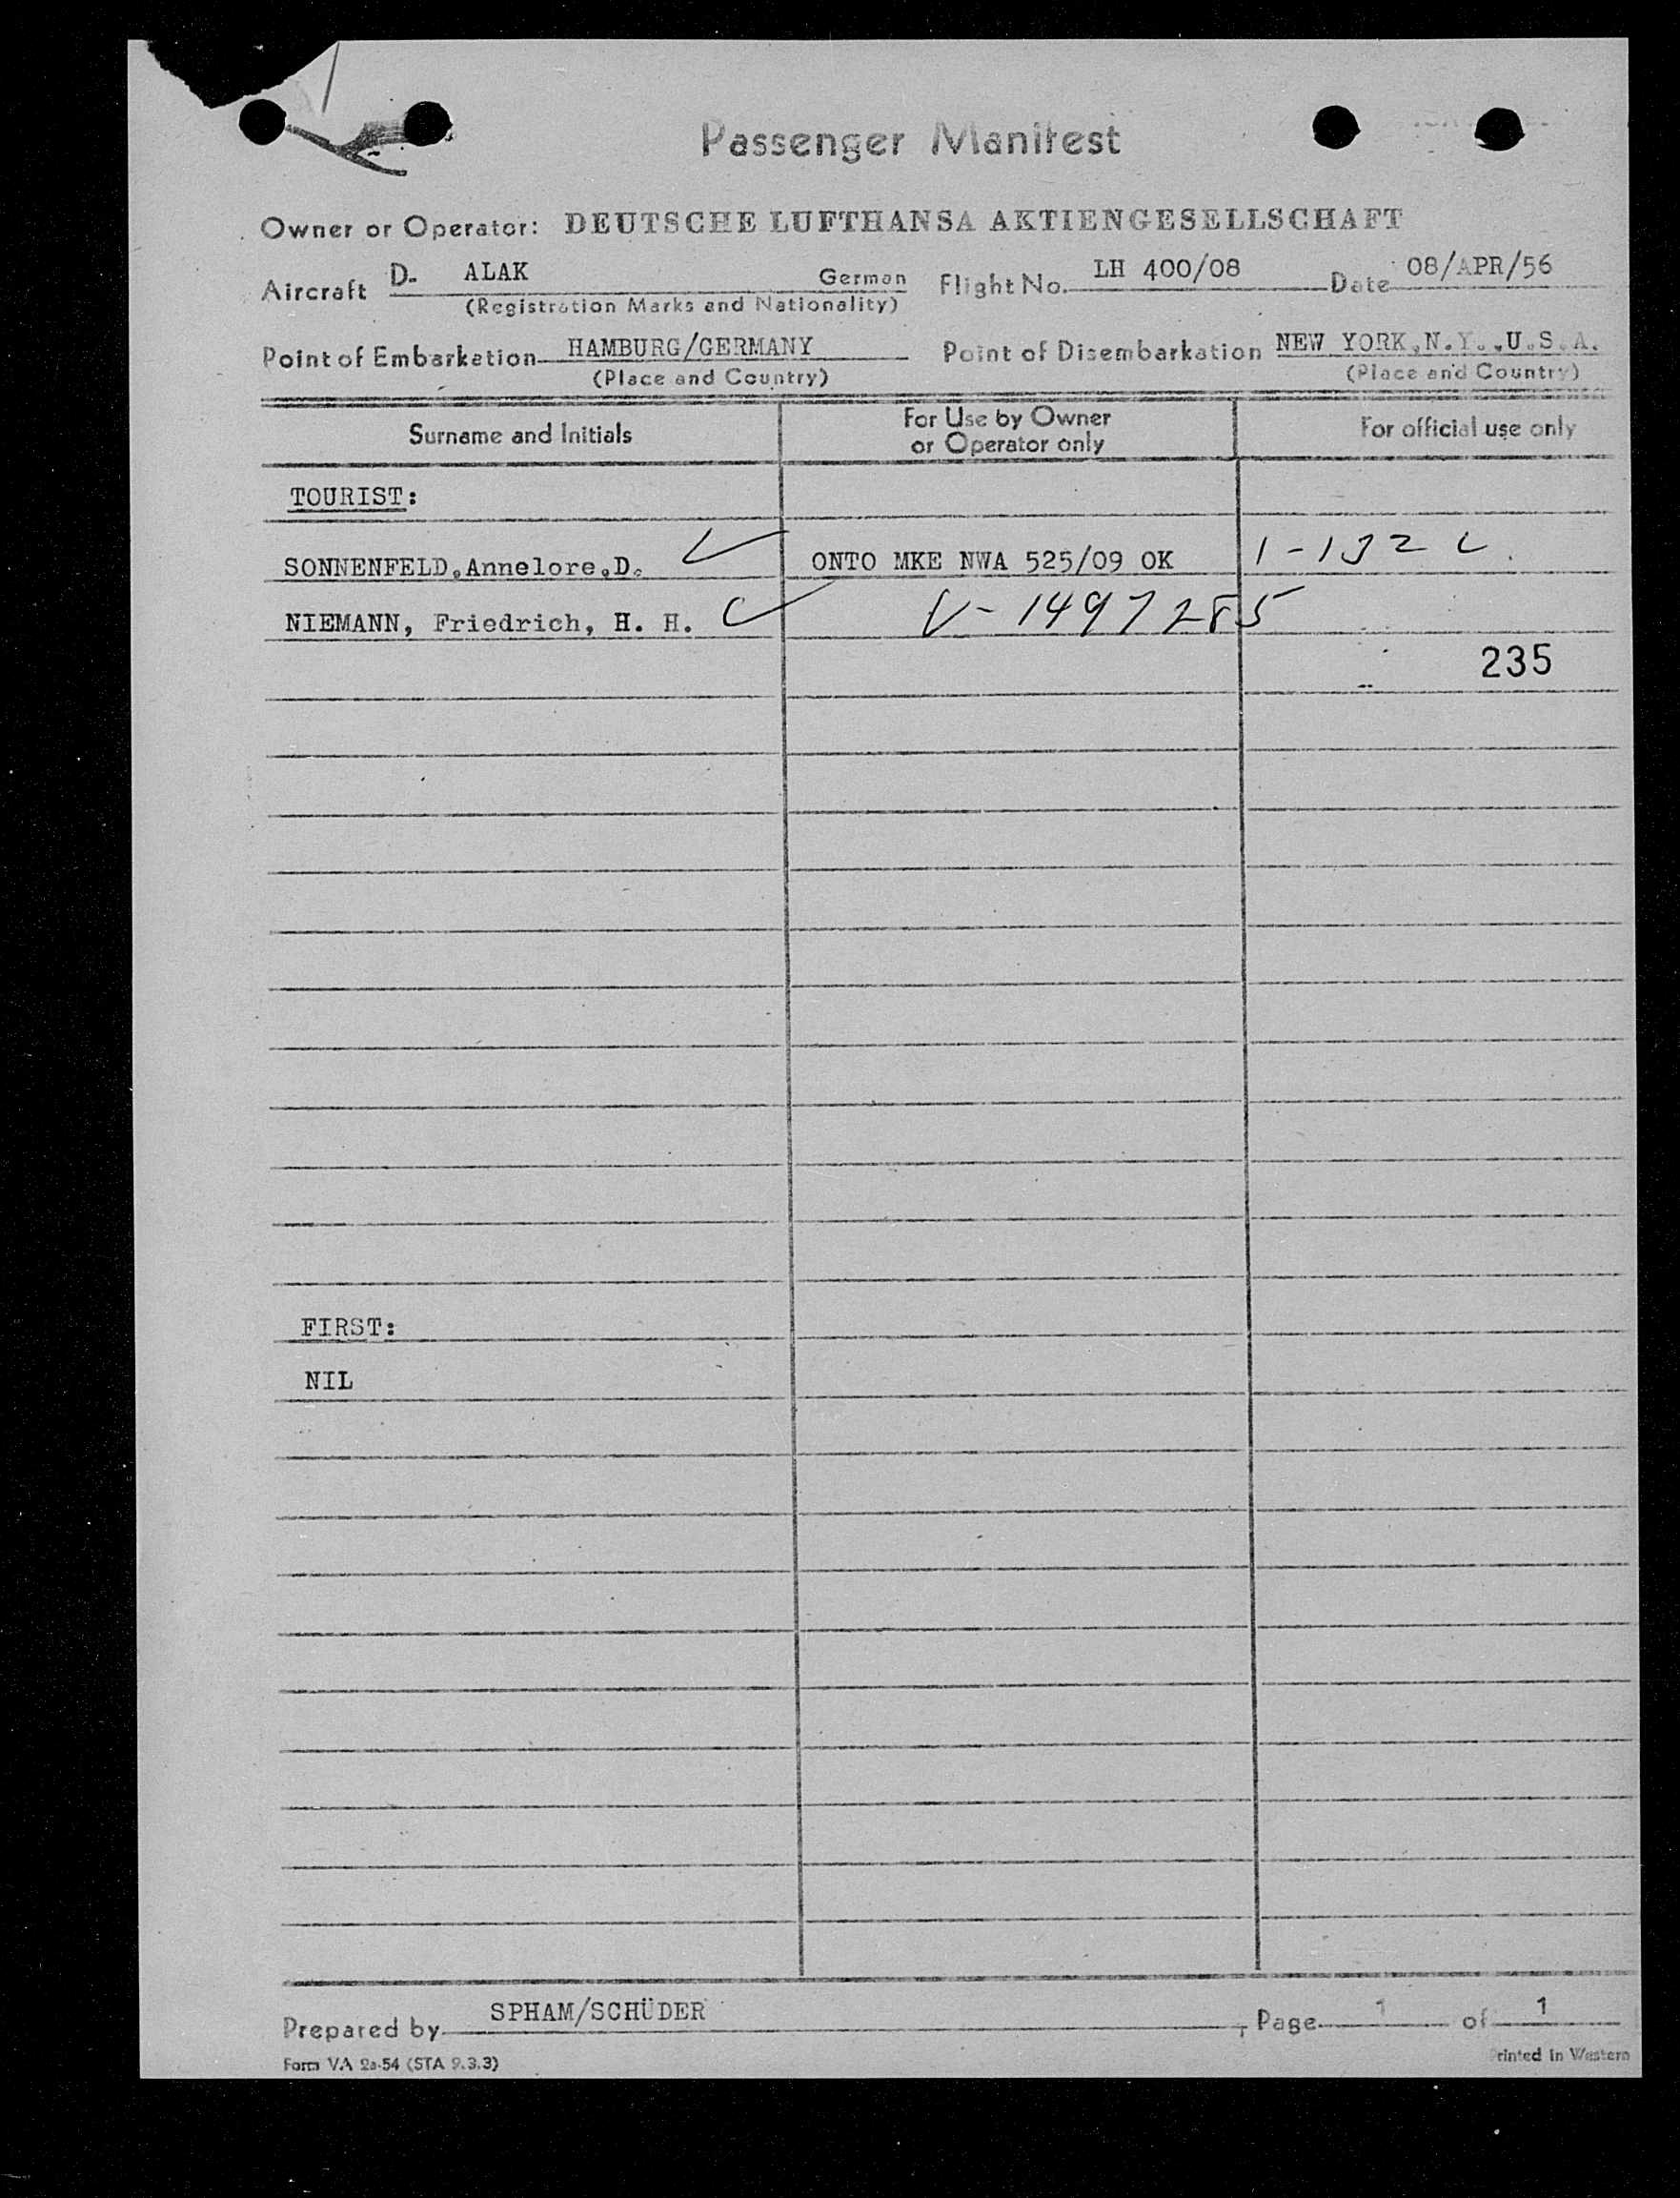 Passenger Manifest
Owner or Operator: DEUTSCHE LUFTHANSA AKTIENGESELLSCHAFT
Aircraft D- ALAK German Flight No. LH 400/08 Date 08/APR/56
(Registration Marks and Nationality)
Point of Embarkation HAMBURG/GERMANY Point of Disembarkation NEW YORK,N.Y.,U.S.A.
(Place and Country) (Place and Country)
Surname and Initials For Use by Owner or Operator only For official use only
TOURIST:
SONNENFELD,Annelore,D. ONTO MKE NWA 525/09 OK
NIEMANN, Friedrich, H. H. V-1497285
235
FIRST:
NIL
Prepared by SPHAM/SCHÜDER , Page 1 of 1
Form VA 2a-54 (STA 9.3.3) Printed in Western